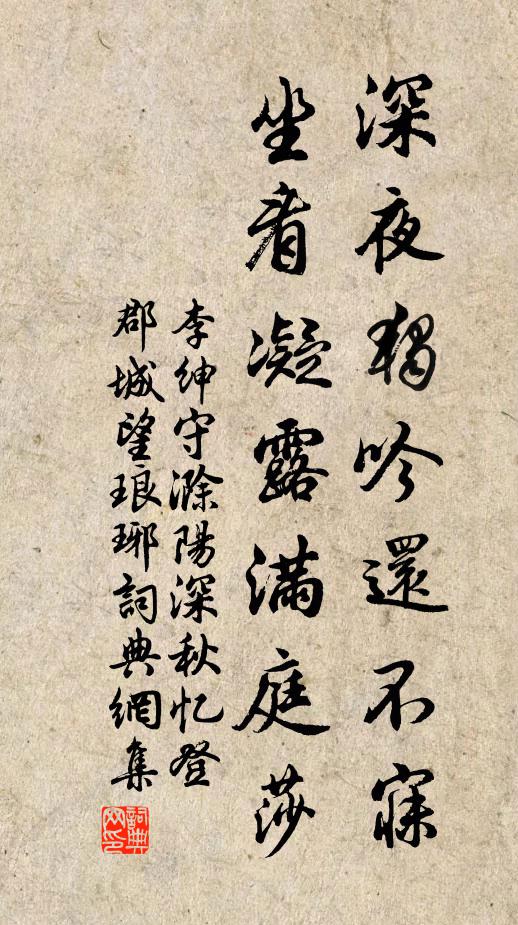 深夜獨吟還不寐
坐看凝露滿庭莎
李紳守滁陽深秋忆登
郡城望琅琊詞典網集
詞典网印